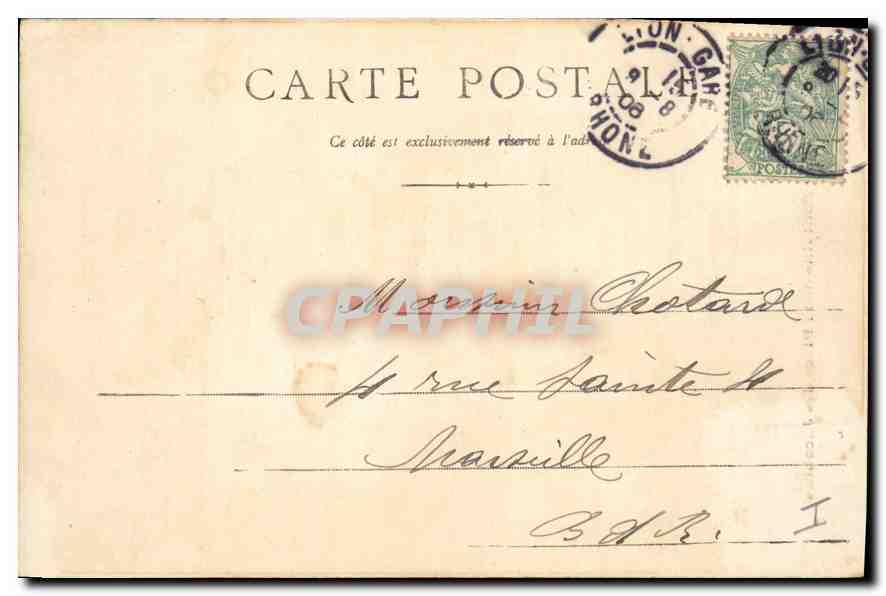 CARTE POSTALE
Ce côté est exclusivement réservé à l'adr
LYON-GARE
RHONE
POSTE
CPAPHIL
Monsieur Chotard
4 rue Sainte 4
Marseille
B d R.
I